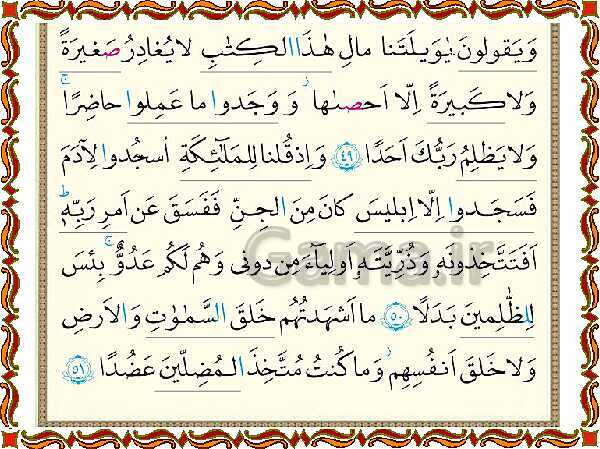 وَ يَقولونَ يٰوَيلَتَنا مالِ هٰذَا الكِتٰبِ لا يُغادِرُ صَغيرَةً
وَ لا كَبيرَةً اِلّا اَحصىٰها ۚ وَ وَجَدوا ما عَمِلوا حاضِرًا ۗ
وَ لا يَظلِمُ رَبُّكَ اَحَدًا ﴿٤٩﴾ وَ اِذ قُلنا لِلمَلٰٓئِكَةِ اسجُدوا لِأٓدَمَ
فَسَجَدوا اِلّا اِبليسَ كانَ مِنَ الجِنِّ فَفَسَقَ عَن اَمرِ رَبِّهٖ ۗ
اَفَتَتَّخِذونَهٗ وَ ذُرِّيَّتَهٗ اَولِيآءَ مِن دونی وَ هُم لَكُم عَدُوٌّ ۚ بِئسَ
لِلظّٰلِمينَ بَدَلًا ﴿٥٠﴾ ما اَشهَدتُهُم خَلقَ السَّمٰوٰتِ وَ الاَرضِ
وَ لا خَلقَ اَنفُسِهِم وَ ما كُنتُ مُتَّخِذَ المُضِلّينَ عَضُدًا ﴿٥١﴾
Gama.ir